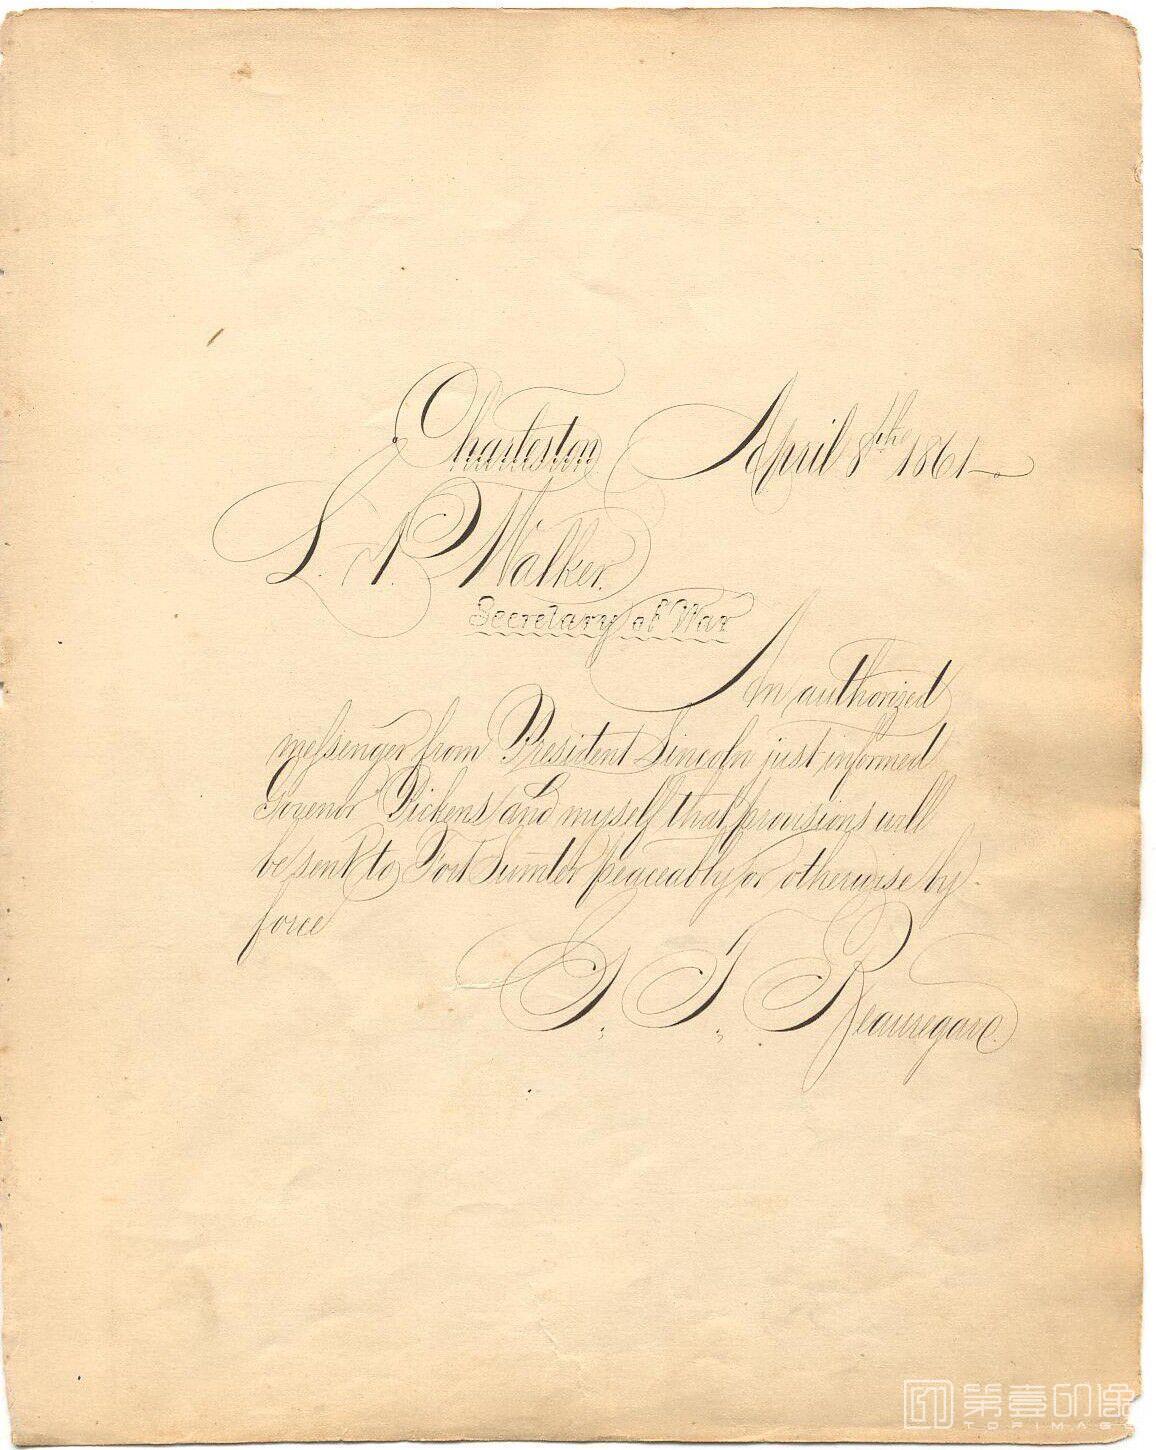 Charleston April 8the 1861
L. P. Walker.
Secretary of War
An authorized
messenger from President Lincoln just informed
Govenor Pickens and myself that provisions will
be sent to Fort Sumter peaceably or otherwise by
force
G. T. Beauregard.
第壹印像
TOPIMAGE